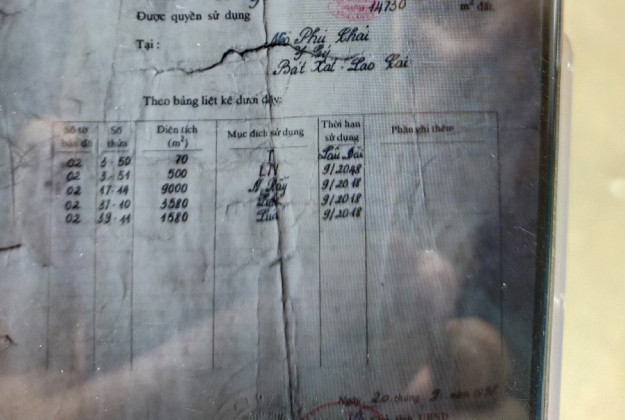 Được quyền sử dụng 14730 m² đất.
Tại : Phú Khải
Y Tý
Bát Xát - Lao Cai
Theo bảng liệt kê dưới đây:
Số tờ bản đồ Số thửa Diện tích (m²) Mục đích sử dụng Thời hạn sử dụng Phần ghi thêm
02 3-50 70 T Lâu Dài
02 3-51 500 LTV 9/2048
02 17-14 9000 N Rẫy 9/2018
02 37-10 3580 Lúa 9/2018
02 39-11 1580 Lúa 9/2018
Ngày 20 tháng 9 năm
tỉnh UBND